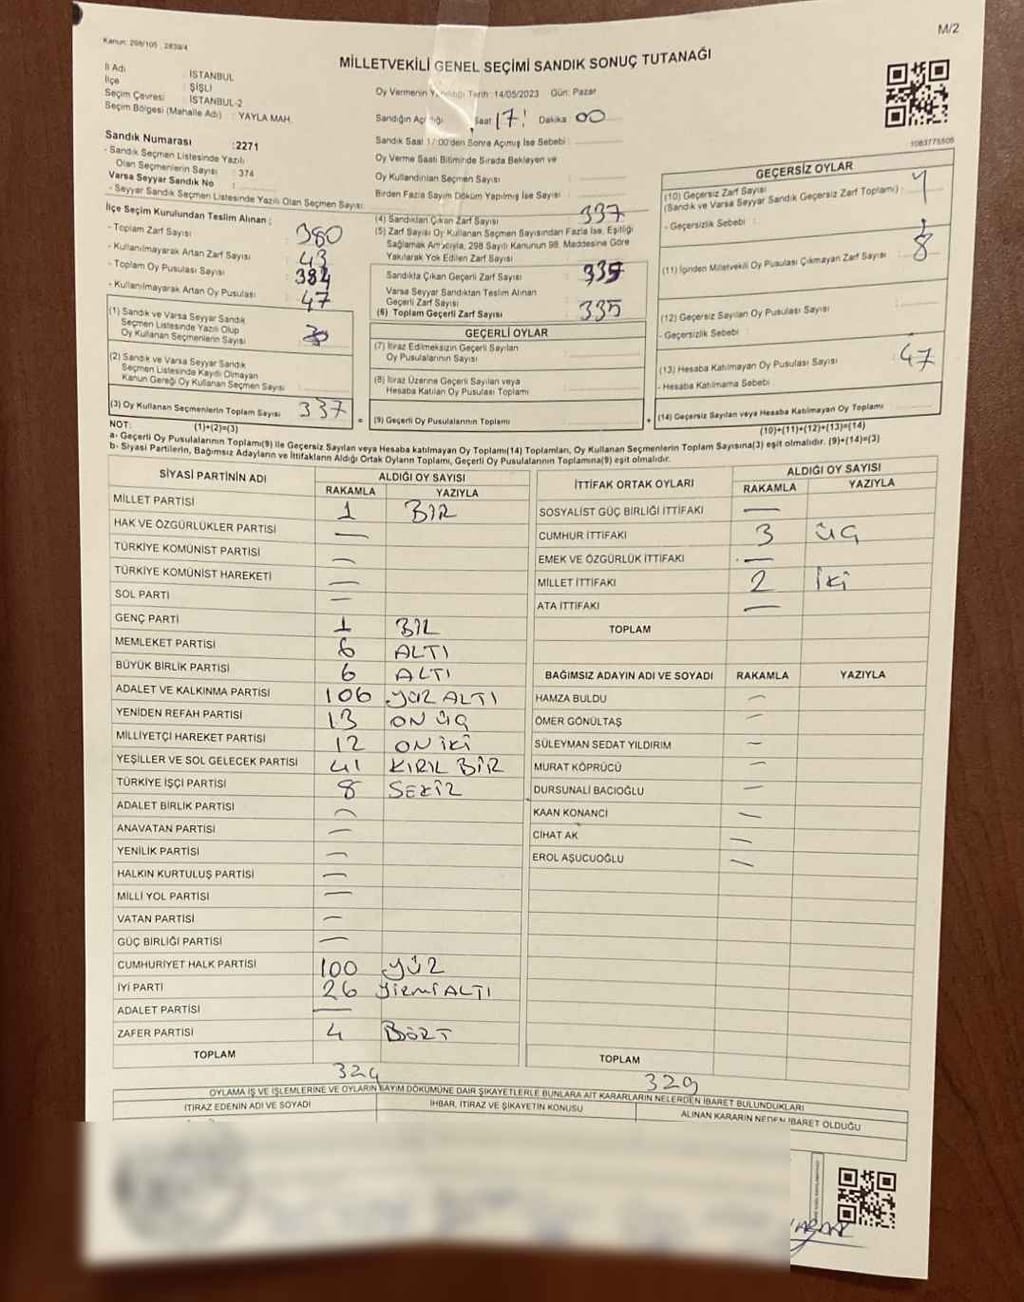 Kanun: 298/105 , 2839/4
M/2
MİLLETVEKİLİ GENEL SEÇİMİ SANDIK SONUÇ TUTANAĞI
İl Adı : İSTANBUL
İlçe : ŞİŞLİ
Seçim Çevresi : İSTANBUL-2
Seçim Bölgesi (Mahalle Adı) : YAYLA MAH.
Sandık Numarası : 2271
- Sandık Seçmen Listesinde Yazılı
Olan Seçmenlerin Sayısı : 374
Varsa Seyyar Sandık No :
- Seyyar Sandık Seçmen Listesinde Yazılı Olan Seçmen Sayısı:
İlçe Seçim Kurulundan Teslim Alınan :
- Toplam Zarf Sayısı : 380
- Kullanılmayarak Artan Zarf Sayısı : 43
- Toplam Oy Pusulası Sayısı : 384
- Kullanılmayarak Artan Oy Pusulası : 47
(1) Sandık ve Varsa Seyyar Sandık
Seçmen Listesinde Yazılı Olup
Oy Kullanan Seçmenlerin Sayısı :
(2) Sandık ve Varsa Seyyar Sandık
Seçmen Listesinde Kaydı Olmayan
Kanun Gereği Oy Kullanan Seçmen Sayısı :
(3) Oy Kullanan Seçmenlerin Toplam Sayısı : 337
(1)+(2)=(3)
Oy Vermenin Yapıldığı Tarih : 14/05/2023 Gün: Pazar
Sandığın Açıldığı Saat 17: Dakika : 00
Sandık Saat 17:00'den Sonra Açmış İse Sebebi :
Oy Verme Saati Bitiminde Sırada Bekleyen ve
Oy Kullandırılan Seçmen Sayısı :
Birden Fazla Sayım Döküm Yapılmış İse Sayısı :
(4) Sandıktan Çıkan Zarf Sayısı : 337
(5) Zarf Sayısı Oy Kullanan Seçmen Sayısından Fazla İse, Eşitliği
Sağlamak Amacıyla, 298 Sayılı Kanunun 98. Maddesine Göre
Yakılarak Yok Edilen Zarf Sayısı :
Sandıkta Çıkan Geçerli Zarf Sayısı : 335
Varsa Seyyar Sandıktan Teslim Alınan
Geçerli Zarf Sayısı :
(6) Toplam Geçerli Zarf Sayısı : 335
GEÇERLİ OYLAR
(7) İtiraz Edilmeksizin Geçerli Sayılan
Oy Pusulalarının Sayısı :
(8) İtiraz Üzerine Geçerli Sayılan veya
Hesaba Katılan Oy Pusulası Toplamı :
(9) Geçerli Oy Pusulalarının Toplamı :
1083775505
GEÇERSİZ OYLAR
(10) Geçersiz Zarf Sayısı
(Sandık ve Varsa Seyyar Sandık Geçersiz Zarf Toplamı) :
- Geçersizlik Sebebi :
(11) İçinden Milletvekili Oy Pusulası Çıkmayan Zarf Sayısı : 8
(12) Geçersiz Sayılan Oy Pusulası Sayısı :
- Geçersizlik Sebebi :
(13) Hesaba Katılmayan Oy Pusulası Sayısı : 47
- Hesaba Katılmama Sebebi :
(14) Geçersiz Sayılan veya Hesaba Katılmayan Oy Toplamı :
(10)+(11)+(12)+(13)=(14)
NOT:
a- Geçerli Oy Pusulalarının Toplamı(9) ile Geçersiz Sayılan veya Hesaba katılmayan Oy Toplamı(14) Toplamları, Oy Kullanan Seçmenlerin Toplam Sayısına(3) eşit olmalıdır. (9)+(14)=(3)
b- Siyasi Partilerin, Bağımsız Adayların ve İttifakların Aldığı Ortak Oyların Toplamı, Geçerli Oy Pusulalarının Toplamına(9) eşit olmalıdır.
SİYASİ PARTİNİN ADI ALDIĞI OY SAYISI
RAKAMLA YAZIYLA
MİLLET PARTİSİ 1 BİR
HAK VE ÖZGÜRLÜKLER PARTİSİ —
TÜRKİYE KOMÜNİST PARTİSİ —
TÜRKİYE KOMÜNİST HAREKETİ —
SOL PARTİ —
GENÇ PARTİ 1 BİR
MEMLEKET PARTİSİ 6 ALTI
BÜYÜK BİRLİK PARTİSİ 6 ALTI
ADALET VE KALKINMA PARTİSİ 106 YÜZ ALTI
YENİDEN REFAH PARTİSİ 13 ON ÜÇ
MİLLİYETÇİ HAREKET PARTİSİ 12 ON İKİ
YEŞİLLER VE SOL GELECEK PARTİSİ 41 KIRIL BİR
TÜRKİYE İŞÇİ PARTİSİ 8 SEKİZ
ADALET BİRLİK PARTİSİ —
ANAVATAN PARTİSİ —
YENİLİK PARTİSİ —
HALKIN KURTULUŞ PARTİSİ —
MİLLİ YOL PARTİSİ —
VATAN PARTİSİ —
GÜÇ BİRLİĞİ PARTİSİ —
CUMHURİYET HALK PARTİSİ 100 YÜZ
İYİ PARTİ 26 YİRMİ ALTI
ADALET PARTİSİ —
ZAFER PARTİSİ 4 DÖRT
TOPLAM
329
İTTİFAK ORTAK OYLARI ALDIĞI OY SAYISI
RAKAMLA YAZIYLA
SOSYALİST GÜÇ BİRLİĞİ İTTİFAKI —
CUMHUR İTTİFAKI 3 ÜÇ
EMEK VE ÖZGÜRLÜK İTTİFAKI —
MİLLET İTTİFAKI 2 İKİ
ATA İTTİFAKI —
TOPLAM
BAĞIMSIZ ADAYIN ADI VE SOYADI RAKAMLA YAZIYLA
HAMZA BULDU —
ÖMER GÖNÜLTAŞ —
SÜLEYMAN SEDAT YILDIRIM —
MURAT KÖPRÜCÜ —
DURSUNALİ BACIOĞLU —
KAAN KONANCİ —
CİHAT AK —
EROL AŞUCUOĞLU —
TOPLAM
329
OYLAMA İŞ VE İŞLEMLERİNE VE OYLARIN SAYIM DÖKÜMÜNE DAİR ŞİKAYETLERLE BUNLARA AİT KARARLARIN NELERDEN İBARET BULUNDUKLARI
İTİRAZ EDENİN ADI VE SOYADI İHBAR, İTİRAZ VE ŞİKAYETİN KONUSU ALINAN KARARIN NEDEN İBARET OLDUĞU